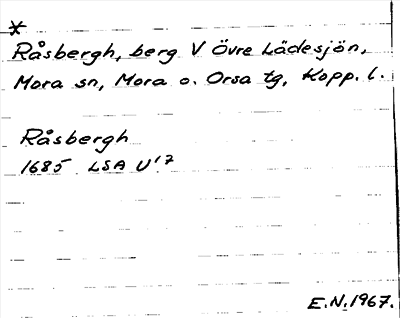 *
Råsbergh, berg V Övre Lädesjön,
Mora sn, Mora o. Orsa tg, Kopp. l.
Råsbergh
1685 LSA U'7
E.N. 1967.